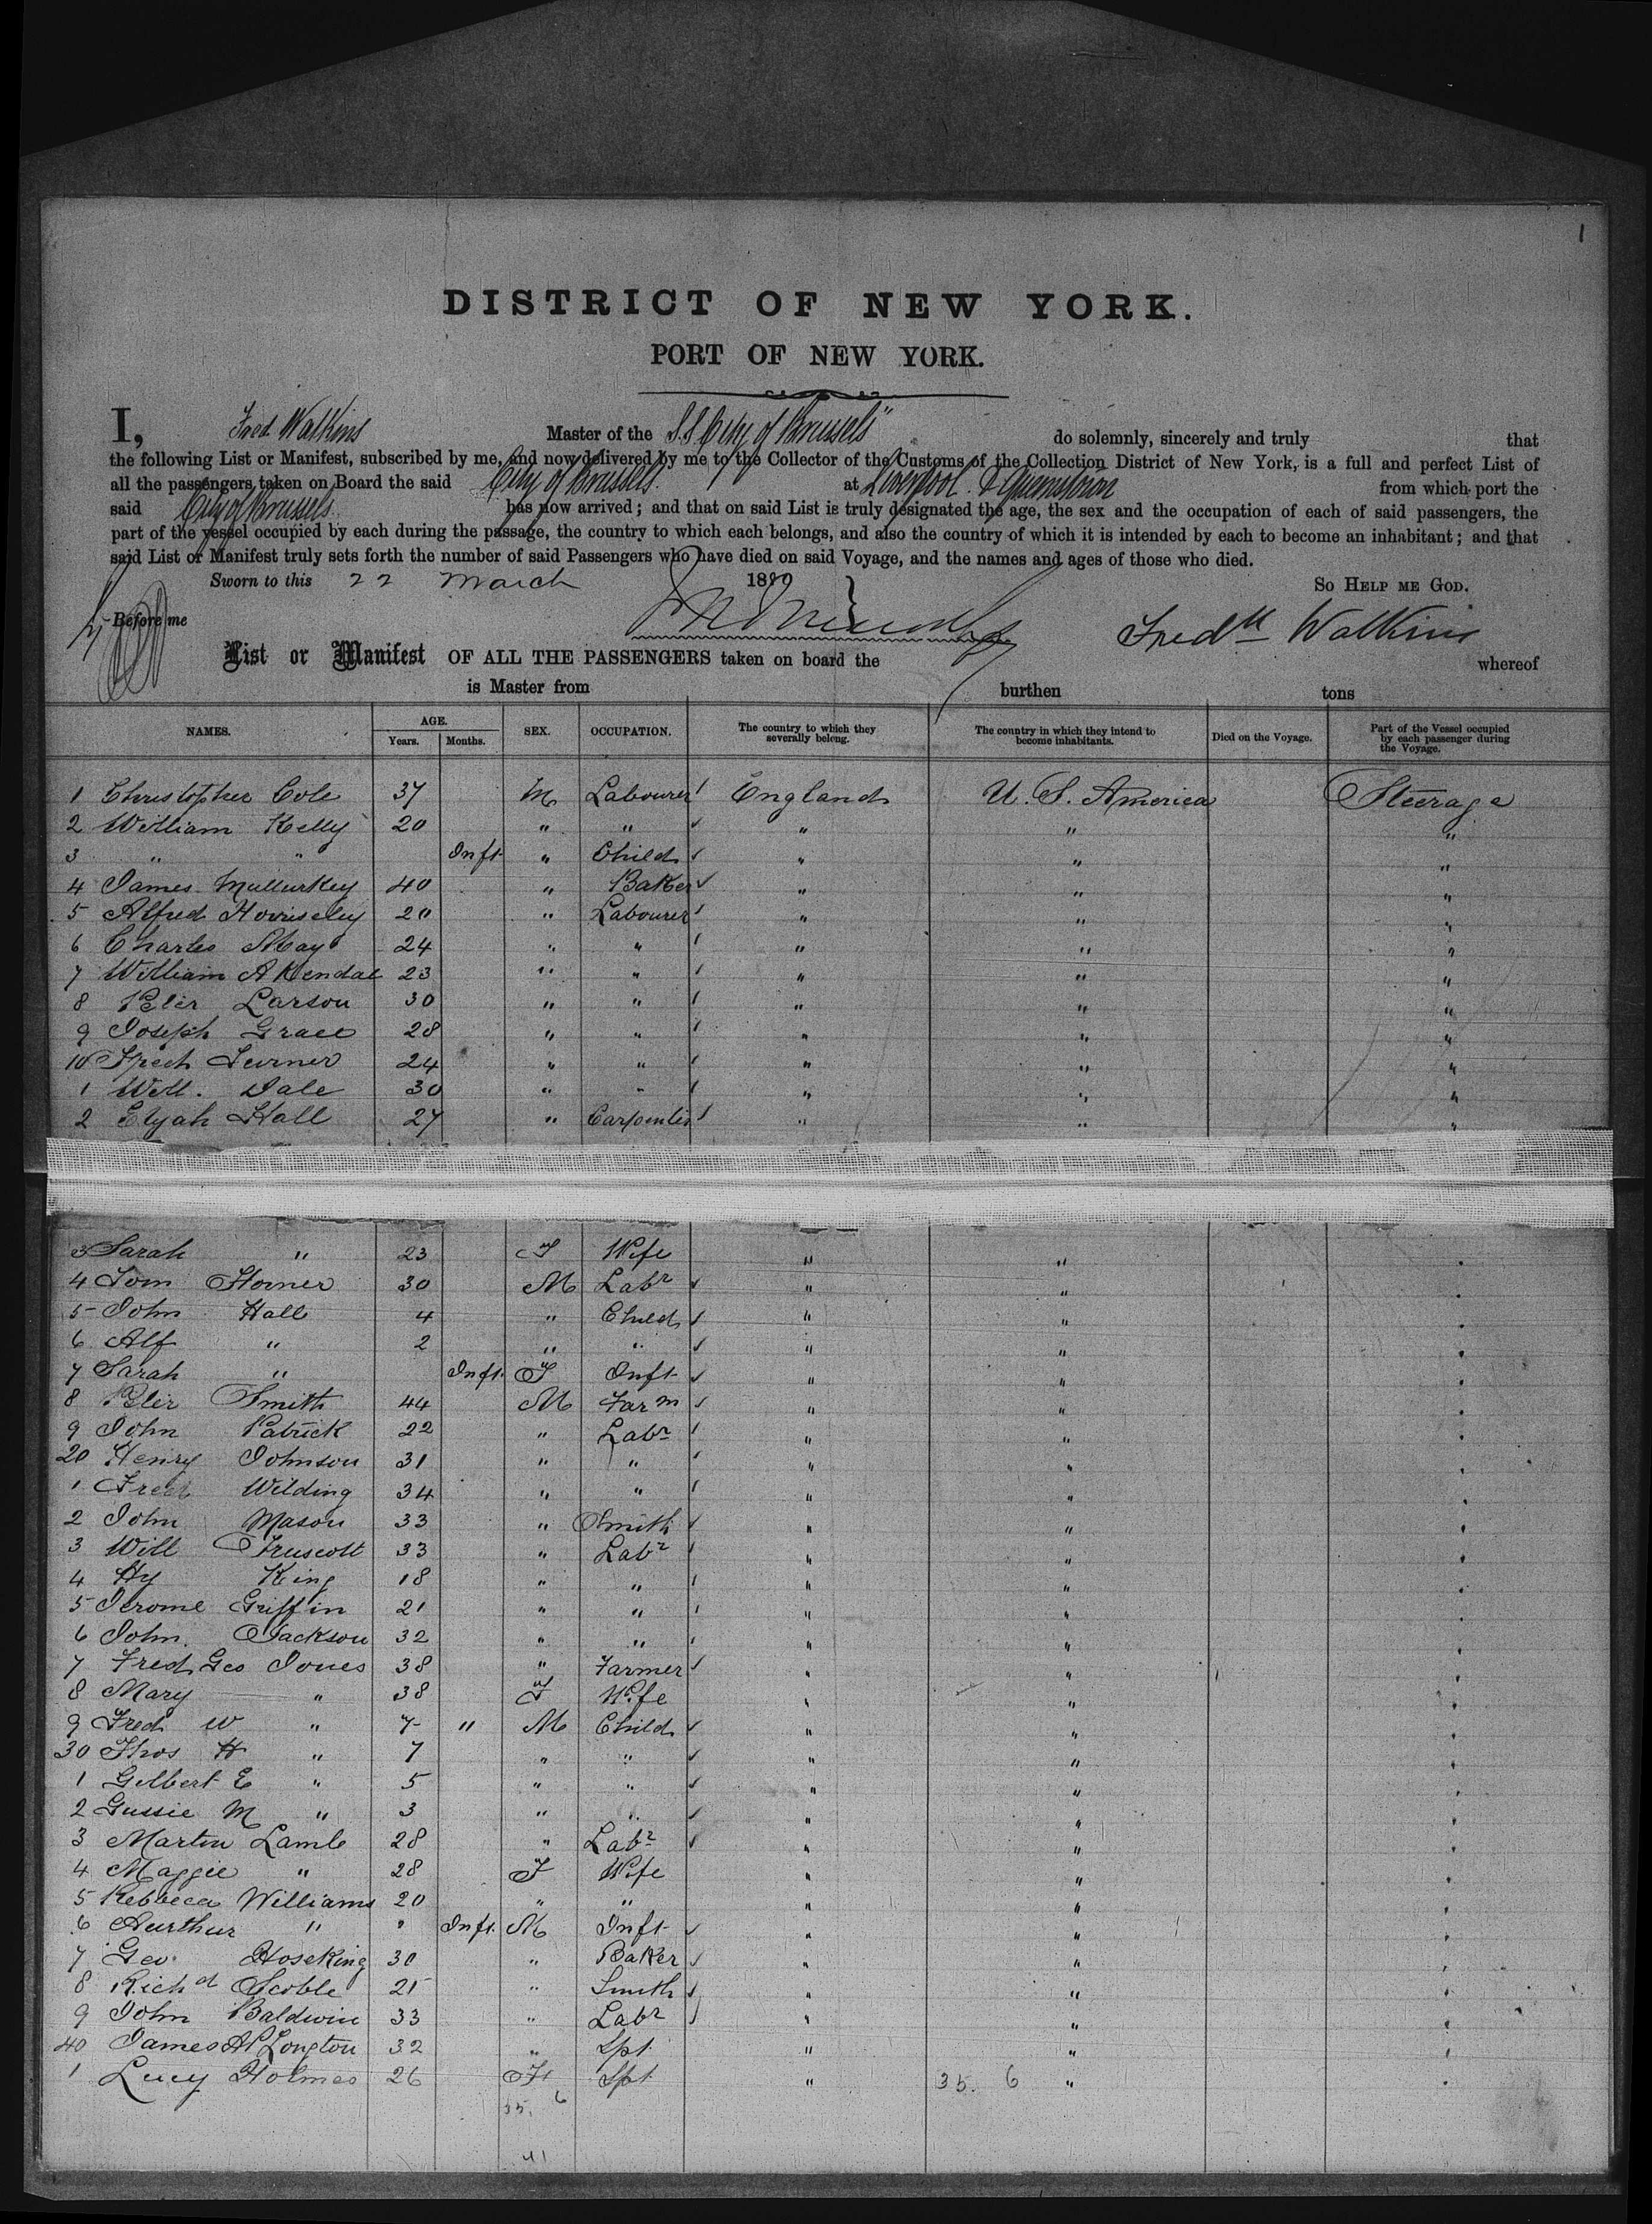 1
DISTRICT OF NEW YORK.
PORT OF NEW YORK.
I, Fred Watkins Master of the S.S. City of Brussels" do solemnly, sincerely and truly that
the following List or Manifest, subscribed by me, and now delivered by me to the Collector of the Customs of the Collection District of New York, is a full and perfect List of
all the passengers taken on Board the said City of Brussels. at Liverpool. & Queenstown from which port the
said City of Brussels. has now arrived; and that on said List is truly designated the age, the sex and the occupation of each of said passengers, the
part of the vessel occupied by each during the passage, the country to which each belongs, and also the country of which it is intended by each to become an inhabitant; and that
said List or Manifest truly sets forth the number of said Passengers who have died on said Voyage, and the names and ages of those who died.
Sworn to this 22 March 1880 So Help me God.
Before me Fredk Watkins
List or Manifest OF ALL THE PASSENGERS taken on board the whereof
is Master from burthen tons
NAMES. AGE. Years. Months. SEX. OCCUPATION. The country to which they severally belong. The country in which they intend to become inhabitants. Died on the Voyage. Part of the Vessel occupied by each passenger during the Voyage.
1 Christopher Cole 37 M Labourer England U. S. America Steerage
2 William Kelly 20 " " " " "
3 " " Inft " Child " " "
4 James Mullurkey 40 " Baker " " "
5 Alfred 20 " Labourer " " "
6 Charles May 24 " " " " "
7 William A Kendal 23 " " " " "
8 Peter Larson 30 " " " " "
9 Joseph Grace 28 " " " " "
10 Turner 24 " " " " "
1 Will. Dale 30 " " " " "
2 Elijah Hall 27 " Carpenter " " "
3 Sarah " 23 F Wife " " "
4 Tom Horner 30 M Labr " " "
5 John Hall 4 " Child " " "
6 Alf " 2 " " " " "
7 Sarah " Inft. F Inft " " "
8 Peter Smith 44 M Farm " " "
9 John Patrick 22 " Labr " " "
20 Henry Johnson 31 " " " " "
1 Fred Wilding 34 " " " " "
2 John Mason 33 " Smith " " "
3 Will Truscott 33 " Labr " " "
4 Hy King 18 " " " " "
5 Jerome Griffin 21 " " " " "
6 John. Jackson 32 " " " " "
7 Fred Geo Jones 38 " Farmer " " "
8 Mary " 38 F Wife " " "
9 Fred W " 7 " M Child " " "
30 Thos H " 7 " " " " "
1 Gilbert E " 5 " " " " "
2 Gussie M " 3 " " " " "
3 Martin Lamb 28 " Labr " " "
4 Maggie " 28 F Wife " " "
5 Rebbeca Williams 20 " " " " "
6 Aurthur " " Inft. M Inft " " "
7 Geo. Hosking 30 " Baker " " "
8 Richd Scoble 25 " Smith " " "
9 John Baldwin 33 " Labr " " "
40 James Longton 32 " Spt " " "
1 Lucy Holmes 26 F Spt " 35. 6 " "
35. 6
41